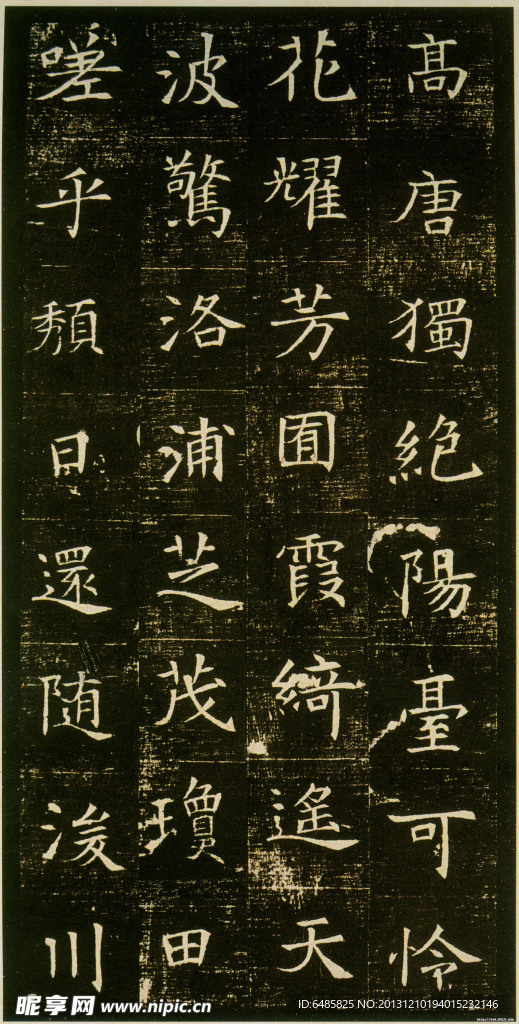 髙唐獨絶陽臺可怜
花耀芳囿霞綺遙天
波驚洛浦芝茂瓊田
嗟乎頽日還随浚川
昵享网 www.nipic.cn
ID:6485825 NO:20131210194015232146